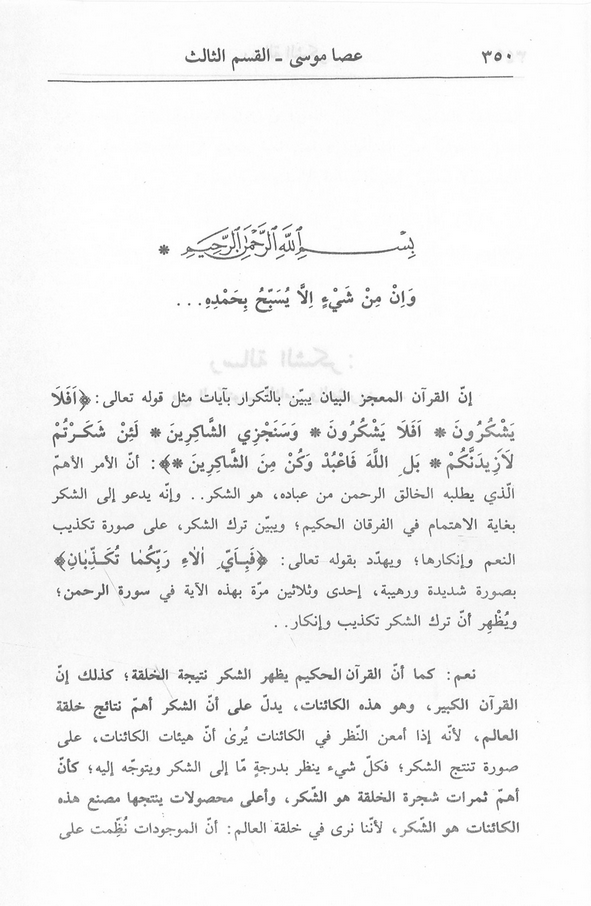 ٣٥٠ عصا موسى - القسم الثالث
بِسْمِ اللَّهِ الرَّحْمَنِ الرَّحِيمِ *
وَاِنْ مِنْ شَيْءٍ اِلَّا يُسَبِّحُ بِحَمْدِهِ...
إنّ القرآن المعجز البيان يبيّن بالتّكرار بآيات مثل قوله تعالى: ﴿اَفَلَا
يَشْكُرُونَ * اَفَلَا يَشْكُرُونَ * وَسَنَجْزِي الشَّاكِرِينَ * لَئِنْ شَكَرْتُمْ
لَاَزِيدَنَّكُمْ * بَلِ اللَّهَ فَاعْبُدْ وَكُنْ مِنَ الشَّاكِرِينَ *﴾: أنّ الأمر الأهمّ
الّذي يطلبه الخالق الرحمن من عباده، هو الشكر.. وإنّه يدعو إلى الشكر
بغاية الاهتمام في الفرقان الحكيم؛ ويبيّن ترك الشكر، على صورة تكذيب
النعم وإنكارها؛ ويهدّد بقوله تعالى: ﴿فَبِاَيِّ اٰلَاءِ رَبِّكُمَا تُكَذِّبَانِ﴾
بصورة شديدة ورهيبة، إحدى وثلاثين مرّة بهذه الآية في سورة الرحمن؛
ويُظْهِر أنّ ترك الشكر تكذيب وإنكار..
نعم: كما أنّ القرآن الحكيم يظهر الشكر نتيجة الخلقة؛ كذلك إنّ
القرآن الكبير، وهو هذه الكائنات، يدلّ على أنّ الشكر أهمّ نتائج خلقة
العالم، لأنّه إذا أمعن النّظر في الكائنات يُرىٰ أنّ هيئات الكائنات، على
صورة تنتج الشكر؛ فكلّ شيء ينظر بدرجةٍ مّا إلى الشكر ويتوجّه إليه؛ كأنّ
أهمّ ثمرات شجرة الخلقة هو الشّكر، وأعلى محصولات ينتجها مصنع هذه
الكائنات هو الشّكر، لأنّنا نرى في خلقة العالم: أنّ الموجودات نُظِّمت على